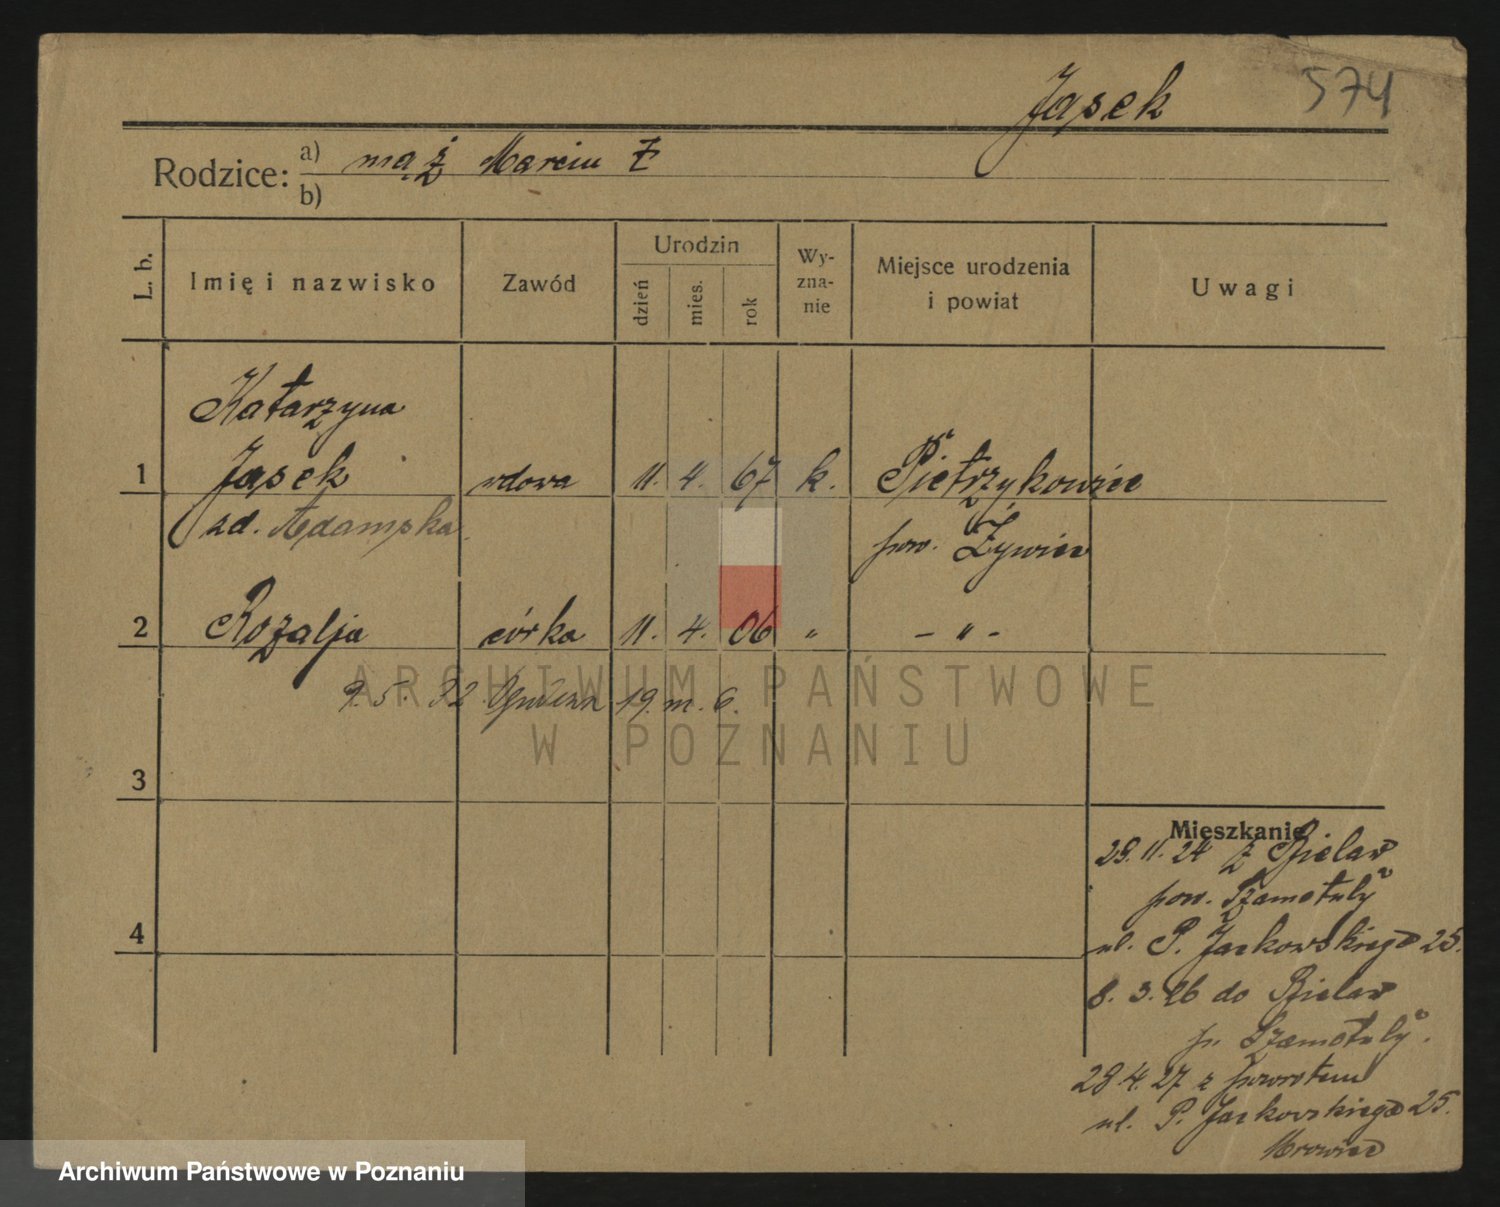 Jasek
574
Rodzice:
a) mąż Marcin
b)
L. b.
Imię i nazwisko
Zawód
Urodzin
dzień
mies.
rok
Wy-
zna-
nie
Miejsce urodzenia
i powiat
Uwagi
Katarzyna
1 Jasek wdowa 11. 4. 67 k. Pietrzykowice
zd. Adamska pow. Żywiec
2 Rozalja córka 11. 4. 06 " - " -
9. 5. 32 19. m. 6.
3
4
Mieszkanie
29. 11. 24 z Bielaw
pow. Szamotuły
ul. P. Jackowskiego 25.
8. 3. 26 do Bielaw
p. Szamotuły.
28. 4. 27 z powrotem
ul. P. Jackowskiego 25.
Mrowiec
ARCHIWUM PAŃSTWOWE
W POZNANIU
Archiwum Państwowe w Poznaniu